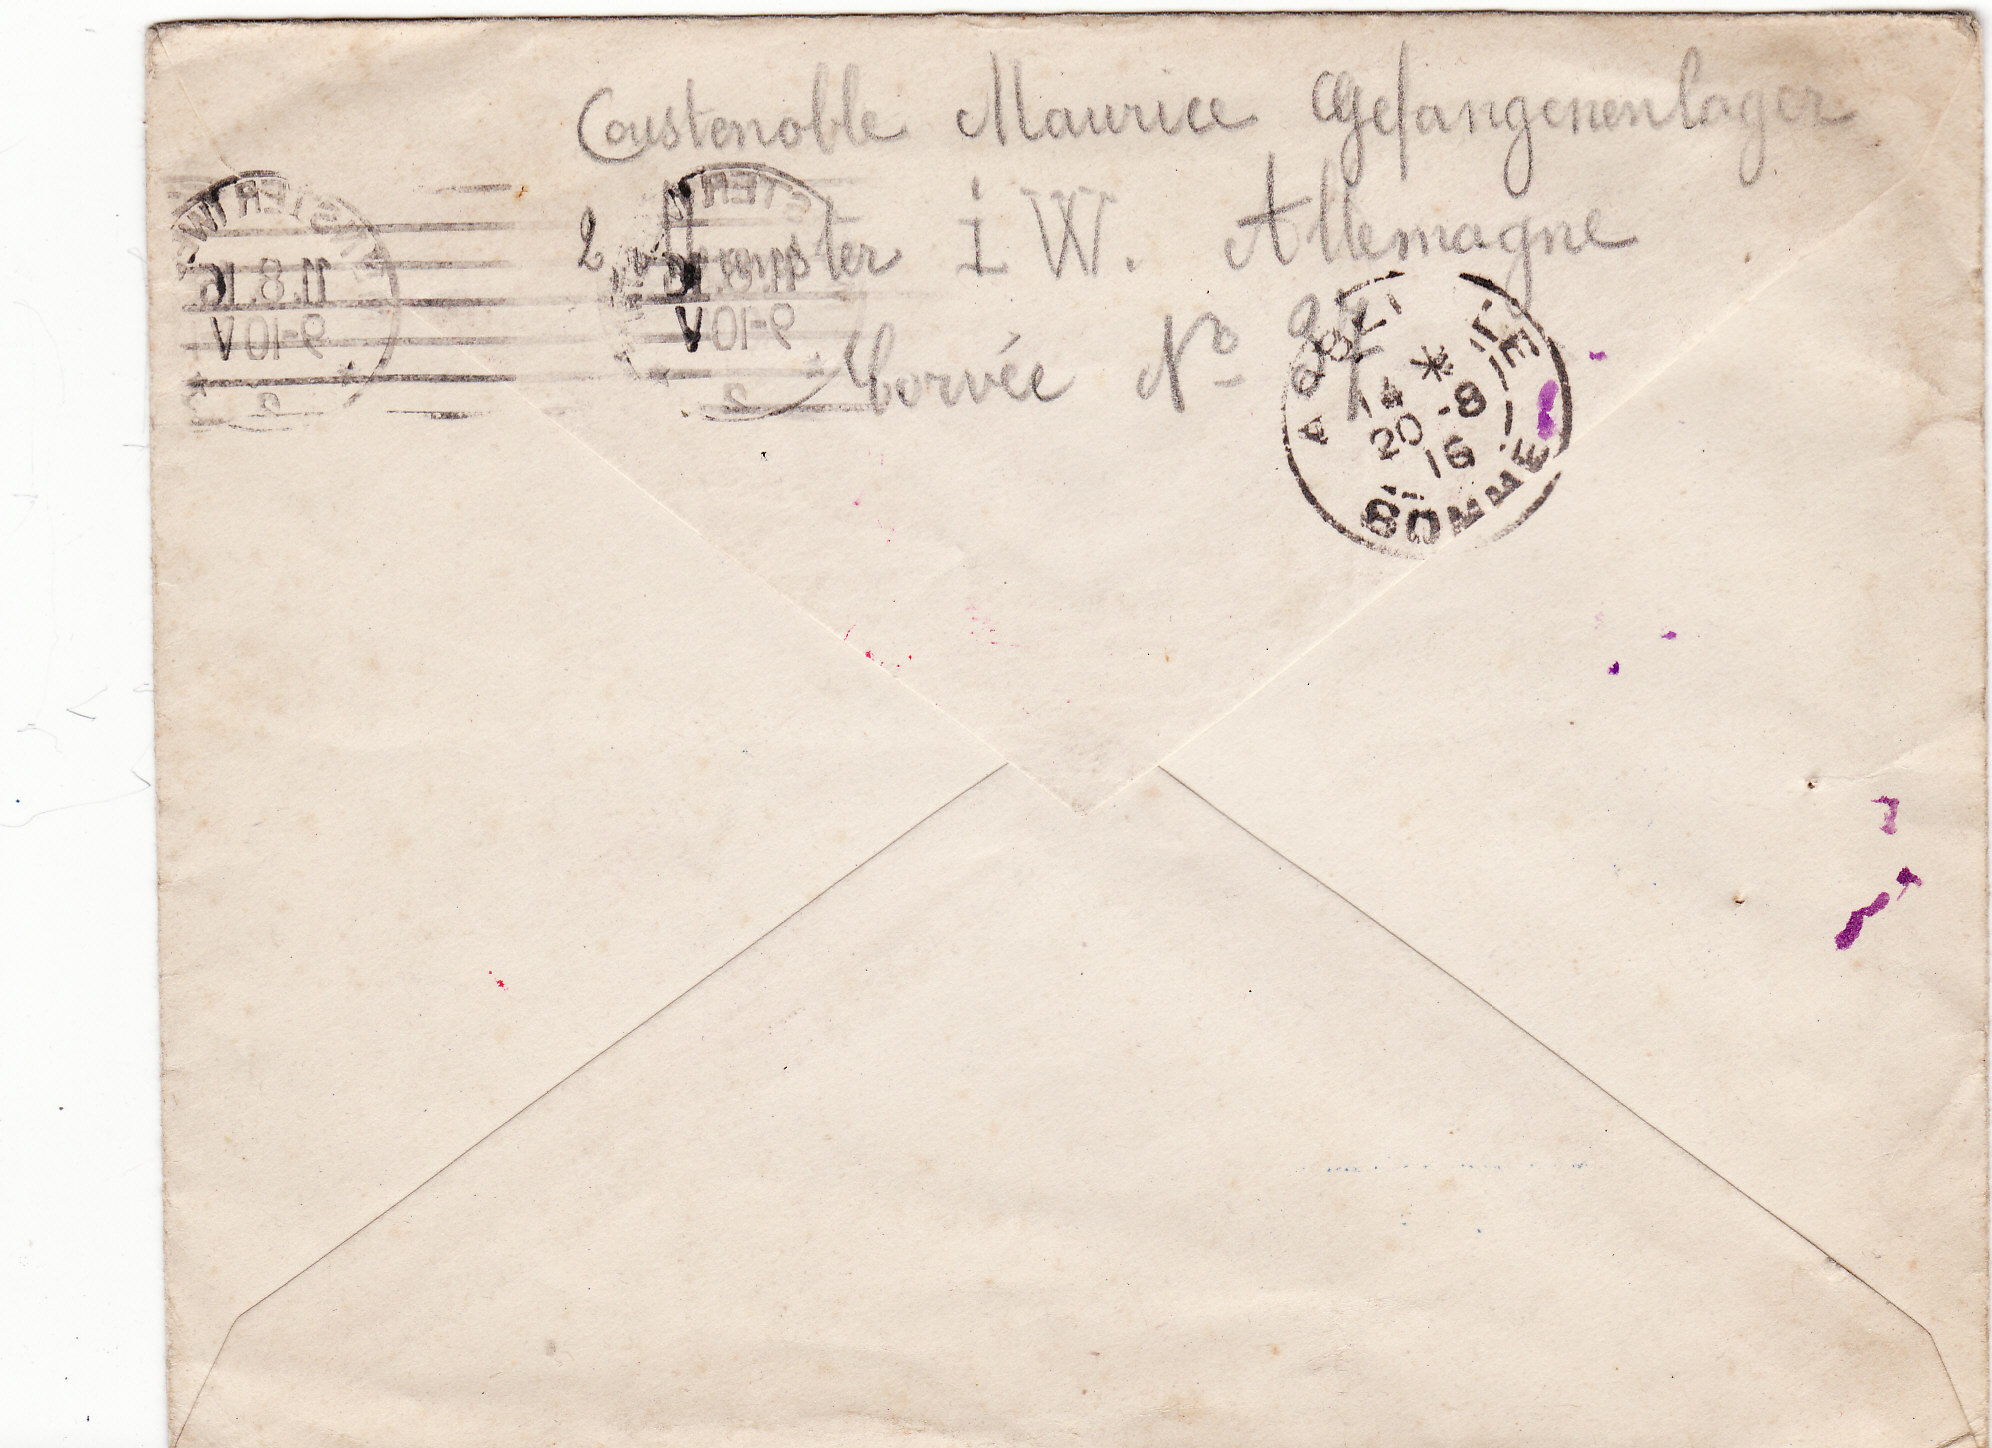 Coustenoble Maurice Gefangenenlager
2 Munster i W. Allemagne
Corvée No 27
STER (W
11.8.16
9-10 V
2
STER
11.8.16
9-10 V
2
ABBEVILLE
14 *
20-8
16
SOMME